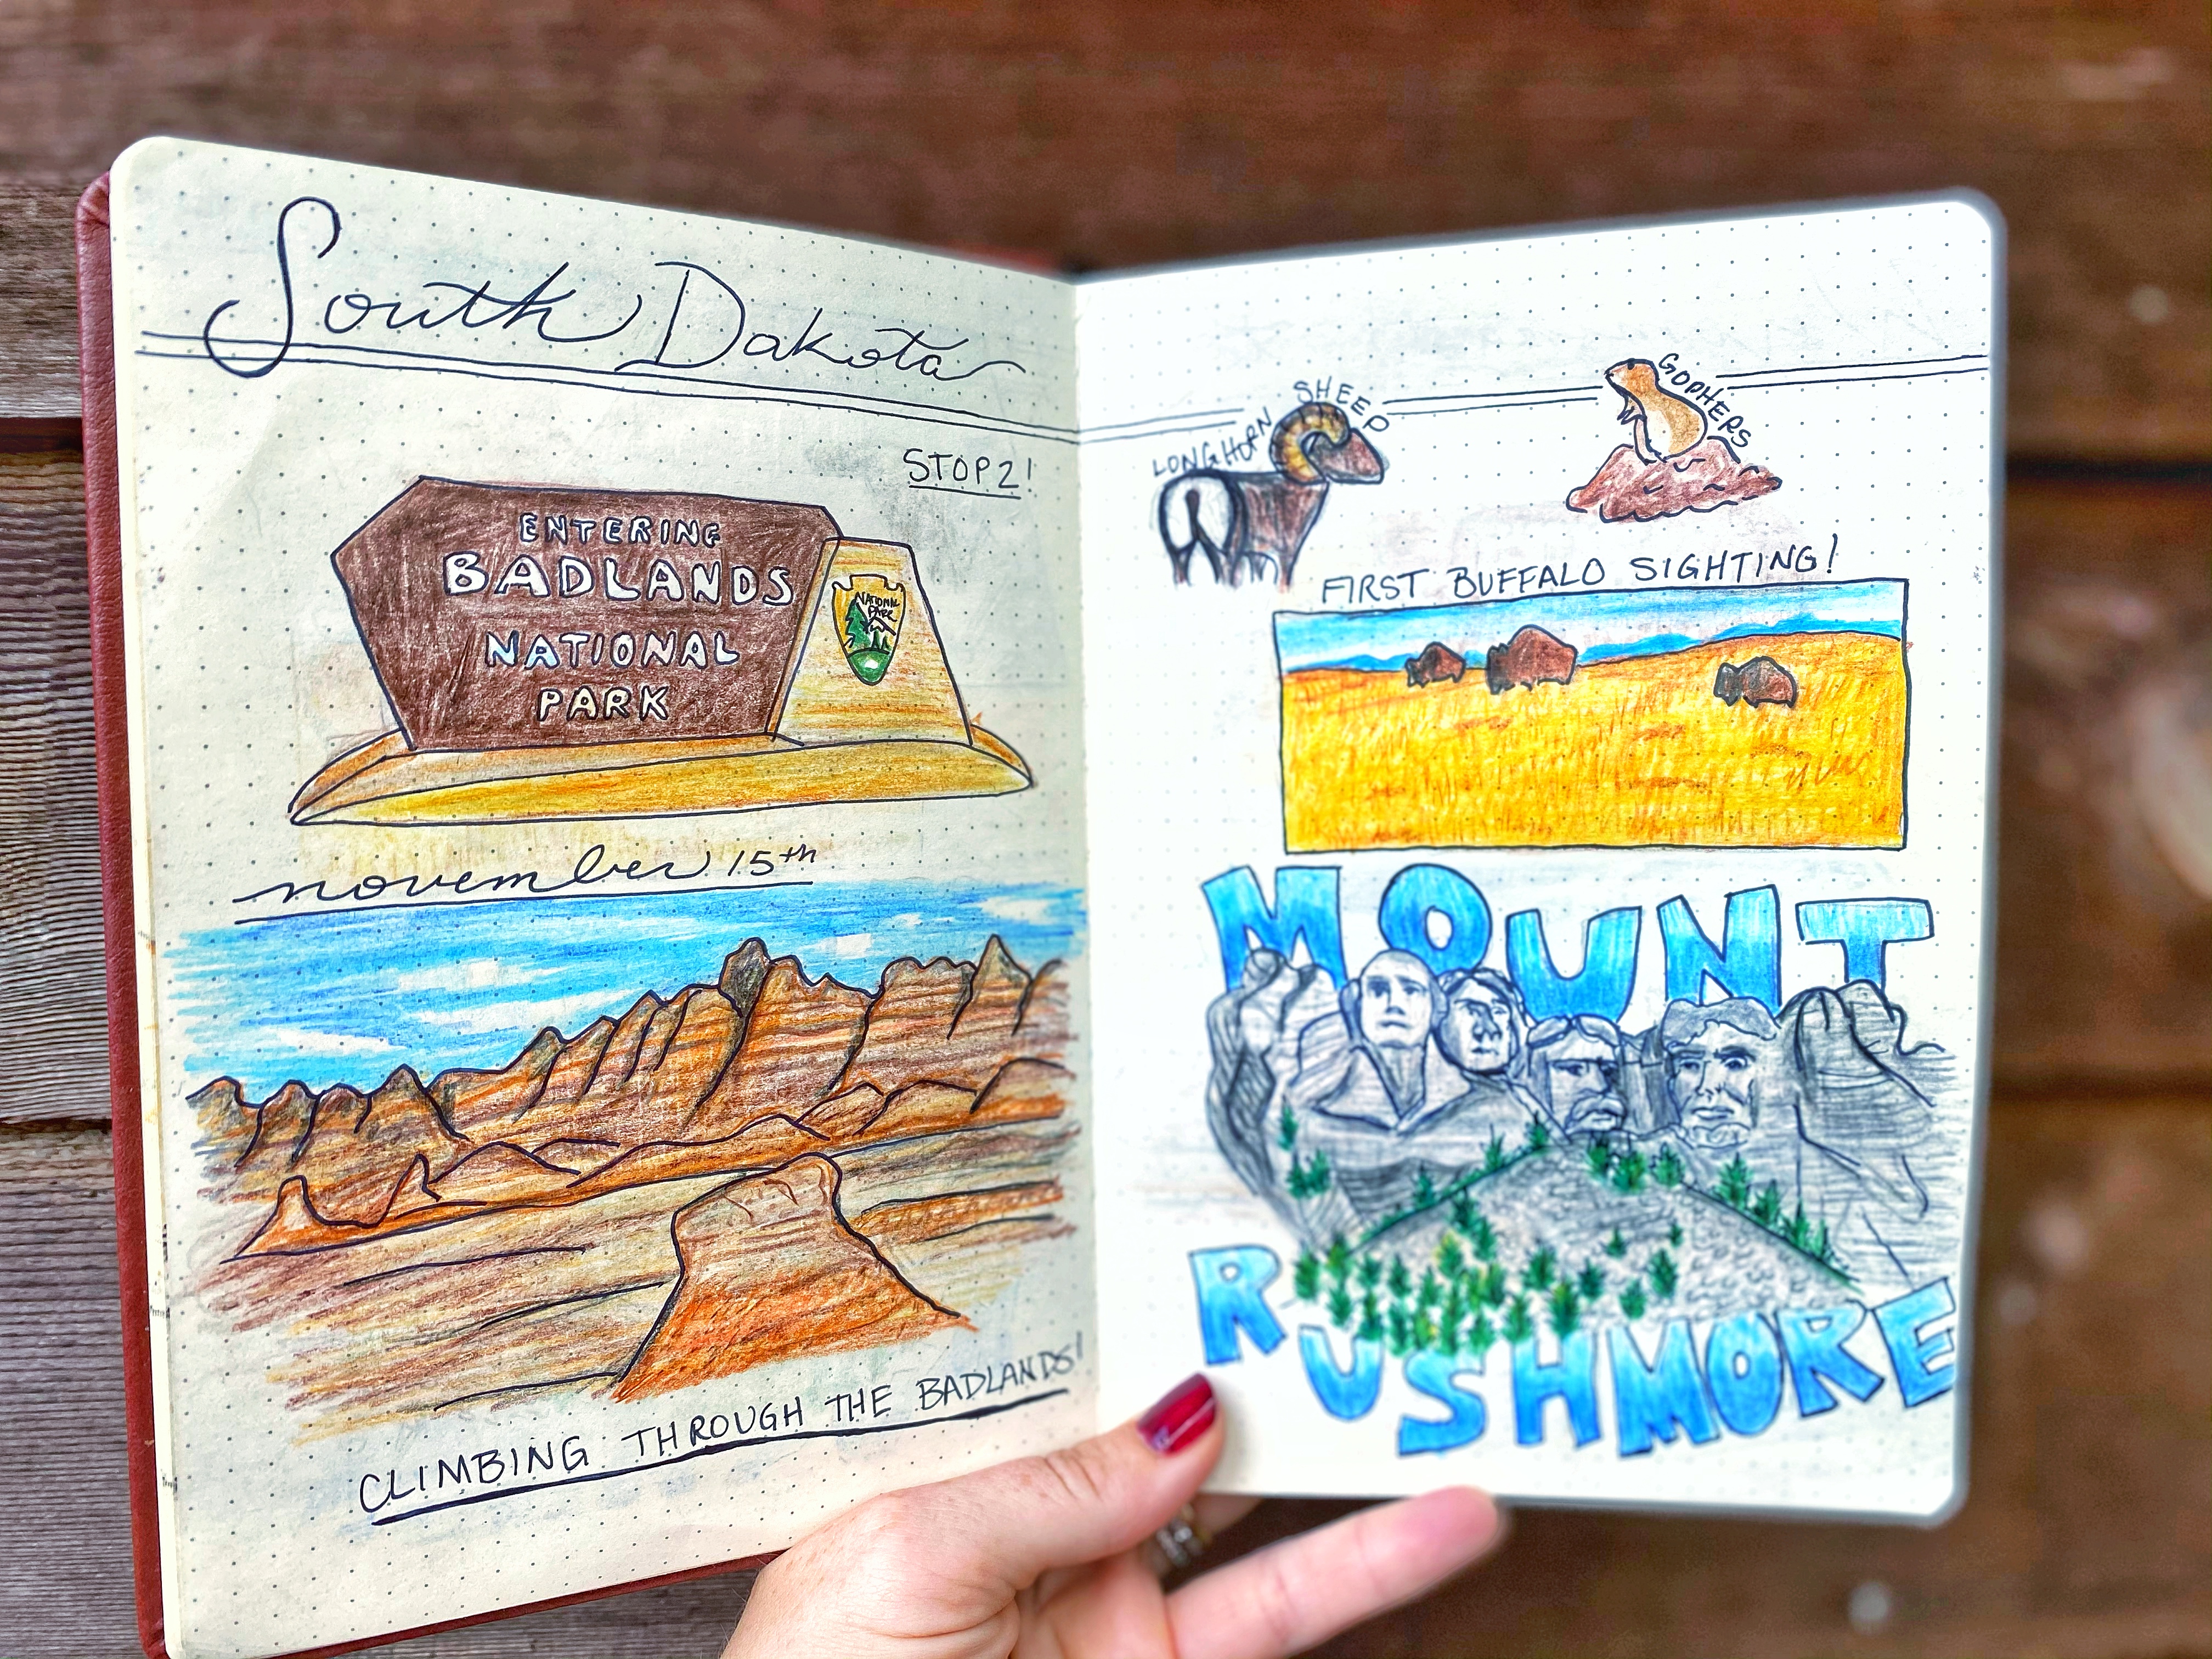 South Dakota
STOP 2!
ENTERING
BADLANDS
NATIONAL
PARK
NATIONAL
PARK
november 15th
CLIMBING THROUGH THE BADLANDS!
LONGHORN SHEEP
GOPHERS
FIRST BUFFALO SIGHTING!
MOUNT
RUSHMORE